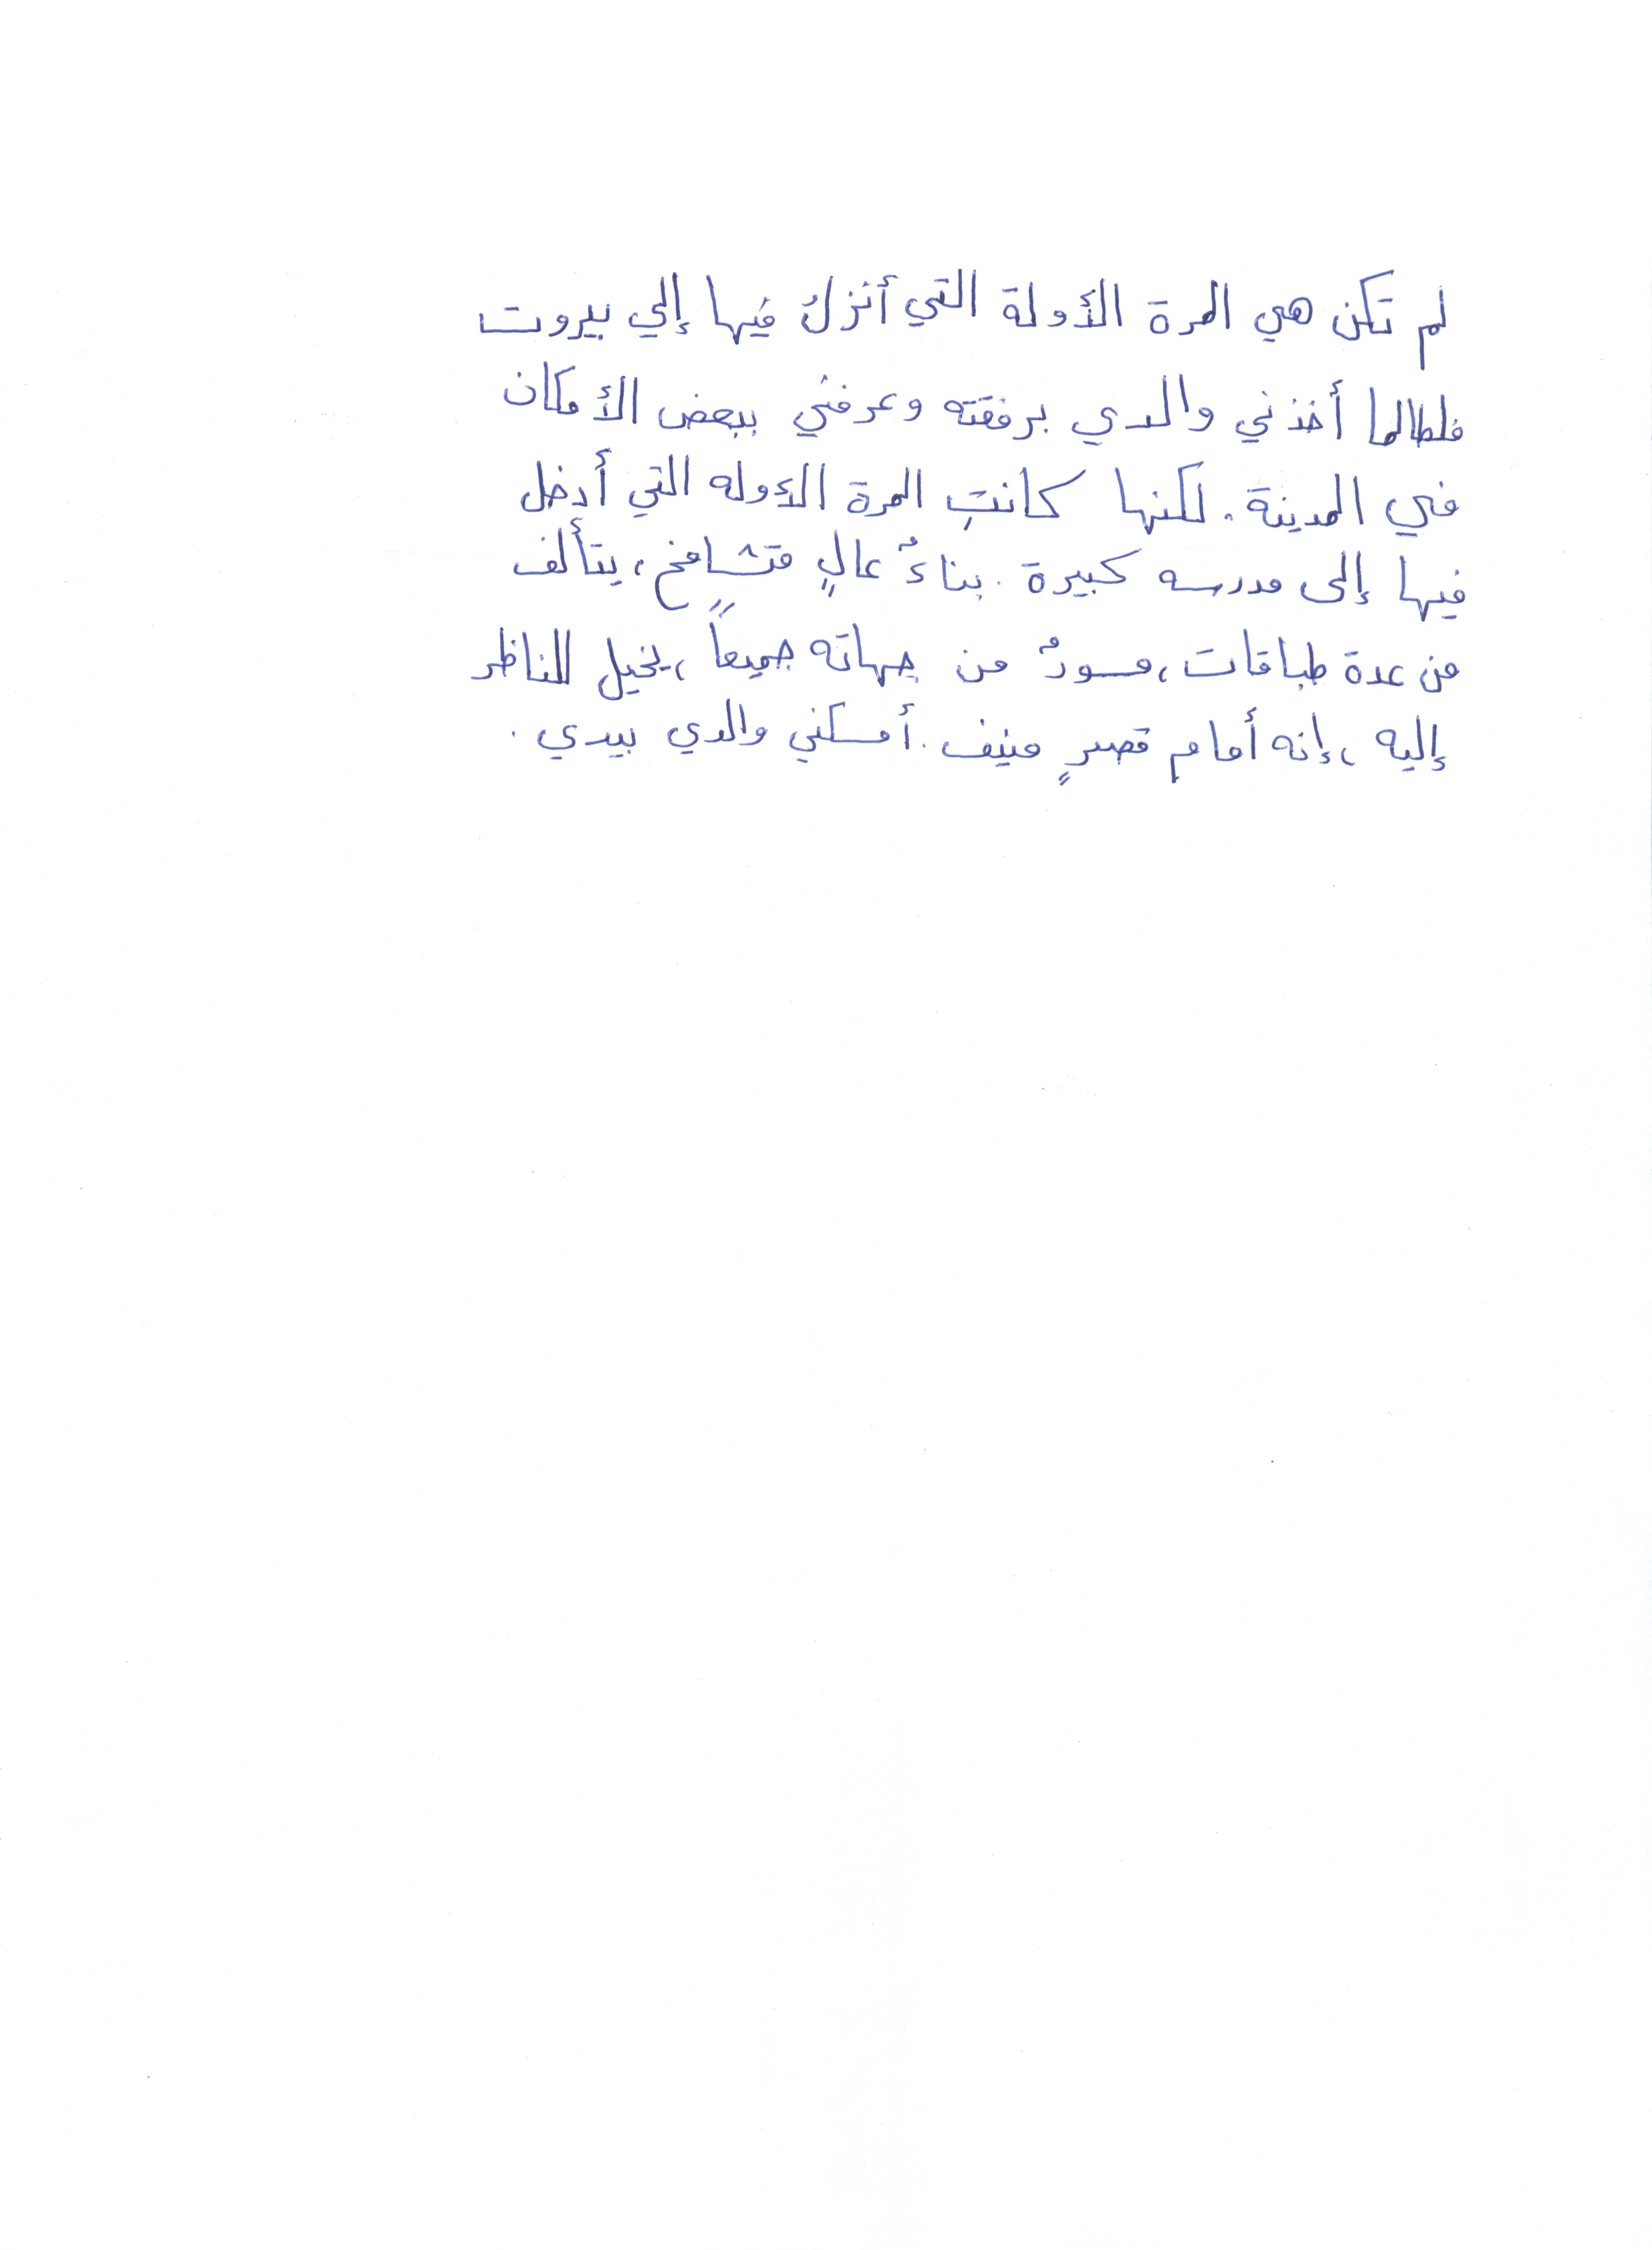 لم تكن هي المرة الأولة التي أنزلُ فيها إلي بيروت
فلطالما أخذني والدي برفقته وعرفني ببعض الأمكان
في المدينة. لكنها كانتِ المرة الأوله التي أدخل
فيها إلى مدرسه كبيرة. بناءٌ عالٍ متشامخ، يتألف
من عدة طباقات، مسورٌ من جهاته جميعاً، يخيل للناظر
إليه، إنه أمام قصرٍ منيف. أمسكني والدي بيدي.